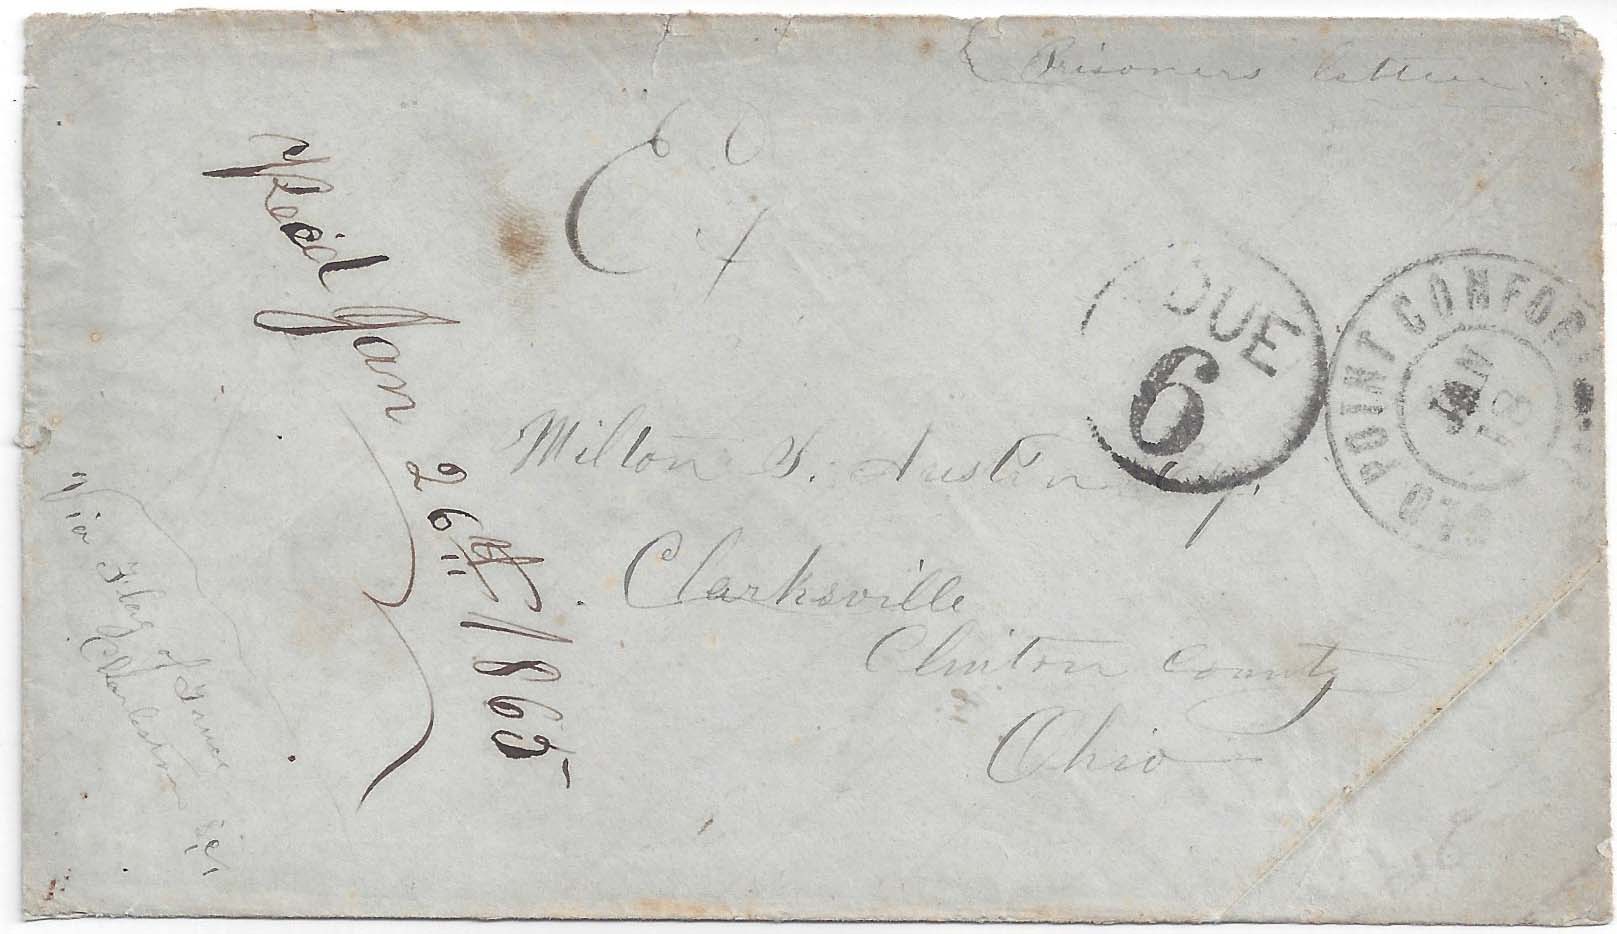 Prisoners letter
Ex
DUE
6
OLD POINT COMFORT
JAN
18
Milton S. Austin
Clarksville
Clinton County
Ohio
Rec'd Jan 26th 1865
Via Flag of Truce
Charleston